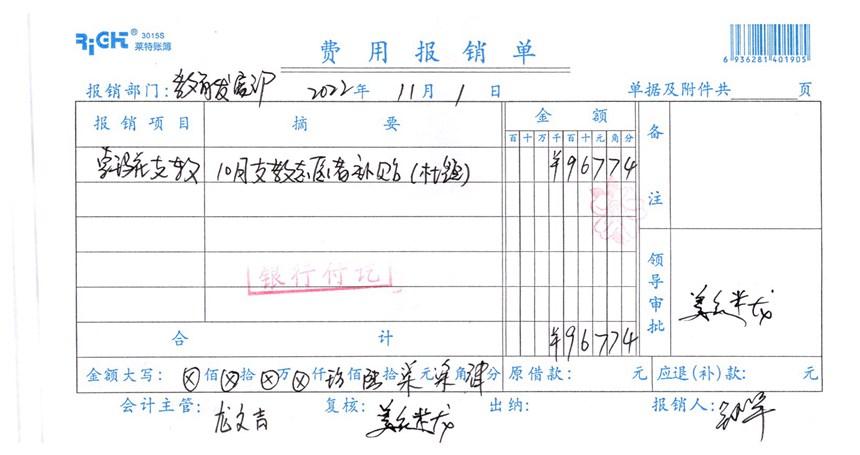 RiGHT® 3015S
莱特账簿
费用报销单
6 936281 401905
报销部门：教育发展部 2022年 11月 1日 单据及附件共 页
报销项目 摘要 金额 备注
百十万千百十元角分
支教 10月支教志愿者补贴 ¥96774
银行付讫
领导审批 姜久米龙
合计 ¥96774
金额大写： ⊗佰⊗拾⊗万⊗仟玖佰陆拾柒元柒角肆分 原借款： 元 应退(补)款： 元
会计主管：尤文吉 复核：姜久米龙 出纳： 报销人：